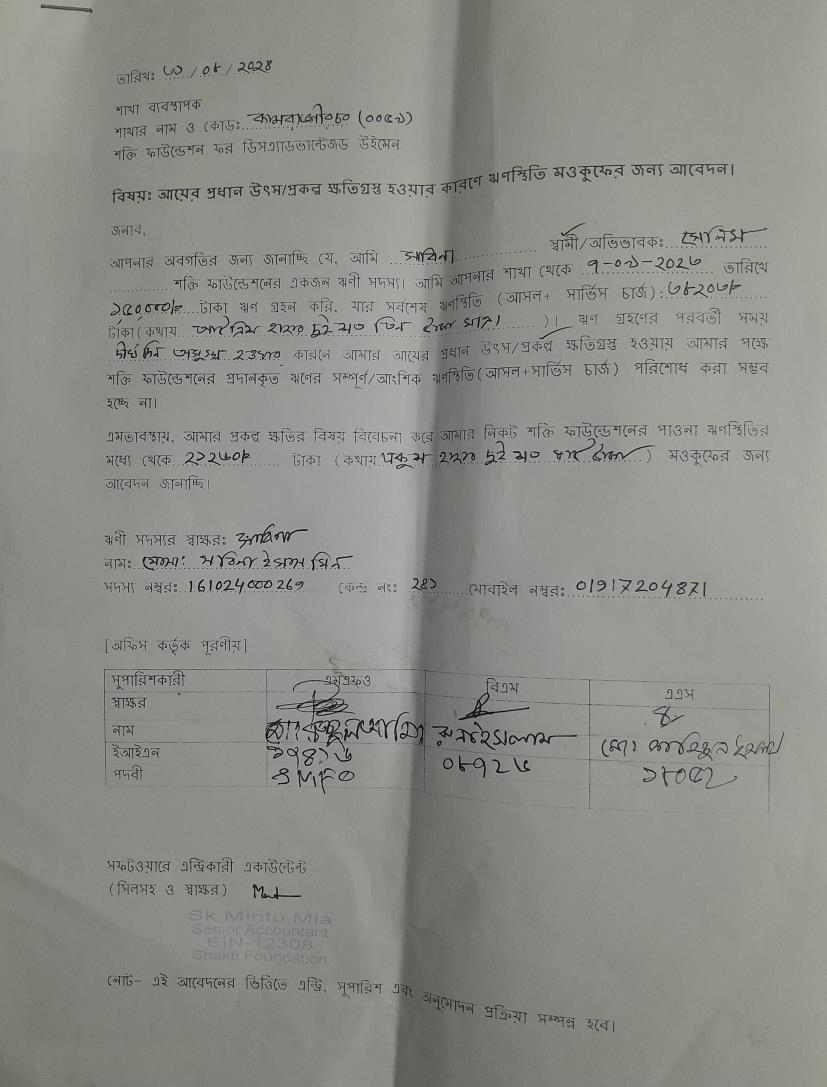 তারিখঃ ৩১ / ০৮ / ২০২৪
শাখা ব্যবস্থাপক
শাখার নাম ও কোডঃ (০০৫১)
শক্তি ফাউন্ডেশন ফর ডিসএ্যাডভান্টেজড উইমেন
বিষয়ঃ আয়ের প্রধান উৎস/প্রকল্প ক্ষতিগ্রস্ত হওয়ার কারণে ঋণস্থিতি মওকুফের জন্য আবেদন।
জনাব,
আপনার অবগতির জন্য জানাচ্ছি যে, আমি সাবিনা স্বামী/অভিভাবকঃ সেলিম
শক্তি ফাউন্ডেশনের একজন ঋণী সদস্য। আমি আপনার শাখা থেকে ৭-০১-২০২৩ তারিখে
টাকা ঋণ গ্রহন করি, যার সর্বশেষ ঋণস্থিতি (আসল+ সার্ভিস চার্জ) : ৩৮২০৩/-
টাকা (কথায় আটত্রিশ হাজার দুই শত তিন টাকা মাত্র)। ঋণ গ্রহণের পরবর্তী সময়
দীর্ঘদিন অসুস্থ্য হওয়ার কারনে আমার আয়ের প্রধান উৎস/প্রকল্প ক্ষতিগ্রস্ত হওয়ায় আমার পক্ষে
শক্তি ফাউন্ডেশনের প্রদানকৃত ঋণের সম্পূর্ণ/আংশিক ঋণস্থিতি (আসল+সার্ভিস চার্জ) পরিশোধ করা সম্ভব
হচ্ছে না।
এমতাবস্থায়, আমার প্রকল্প ক্ষতির বিষয় বিবেচনা করে আমার নিকট শক্তি ফাউন্ডেশনের পাওনা ঋণস্থিতির
মধ্যে থেকে টাকা (কথায় একুশ হাজার দুই শত টাকা) মওকুফের জন্য
আবেদন জানাচ্ছি।
ঋণী সদস্যর স্বাক্ষরঃ সাবিনা
নামঃ মোসাঃ সাবিনা
সদস্য নম্বরঃ 161024000269 কেন্দ্র নংঃ ২৪১ মোবাইল নম্বরঃ 01917204871
[অফিস কর্তৃক পূরণীয়]
সুপারিশকারী এসএফও বিএম এএস
স্বাক্ষর
নাম
ইআইএন ১৭৪১৬ ০৮৭২৬ ১৮০৫২
পদবী SMFO
সফটওয়ারে এন্ট্রিকারী একাউন্টেন্ট
(সিলসহ ও স্বাক্ষর)
Sk Mintu Mia
Senior Accountant
EIN-12308
Shakti Foundation
নোট- এই আবেদনের ভিত্তিতে এন্ট্রি, সুপারিশ এবং অনুমোদন প্রক্রিয়া সম্পন্ন হবে।